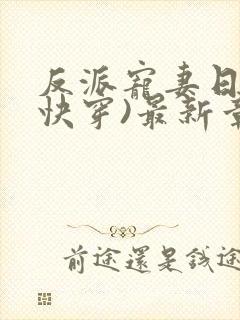 反派寵妻日
快穿)最新章
前途還是錢途